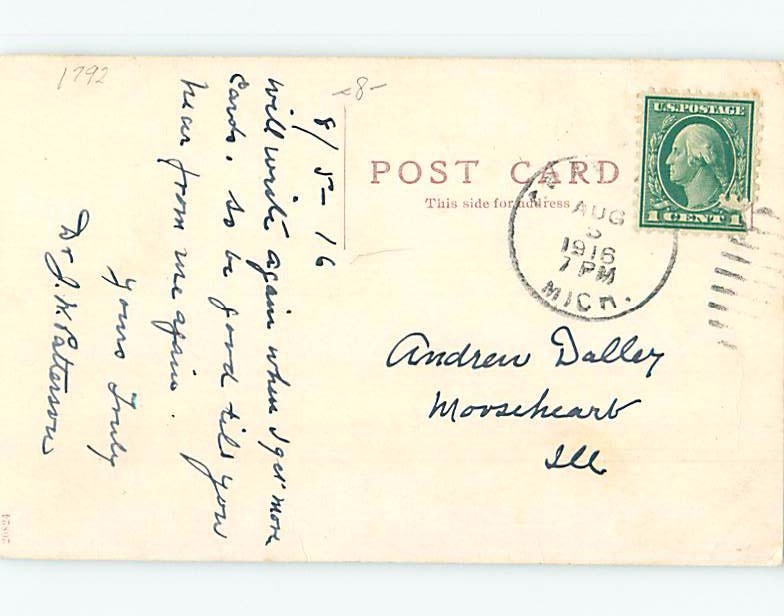 1792
-8-
8/5-16
Will write again when I get more
Cards. So be good till you
hear from me again.
Yours Truly
Dr J. W. Patterson
POST CARD
This side for address
U.S. POSTAGE
1 CENT 1
AUG
5
1916
7 PM
MICH.
Andrew Dalley
Mooseheart
Ill